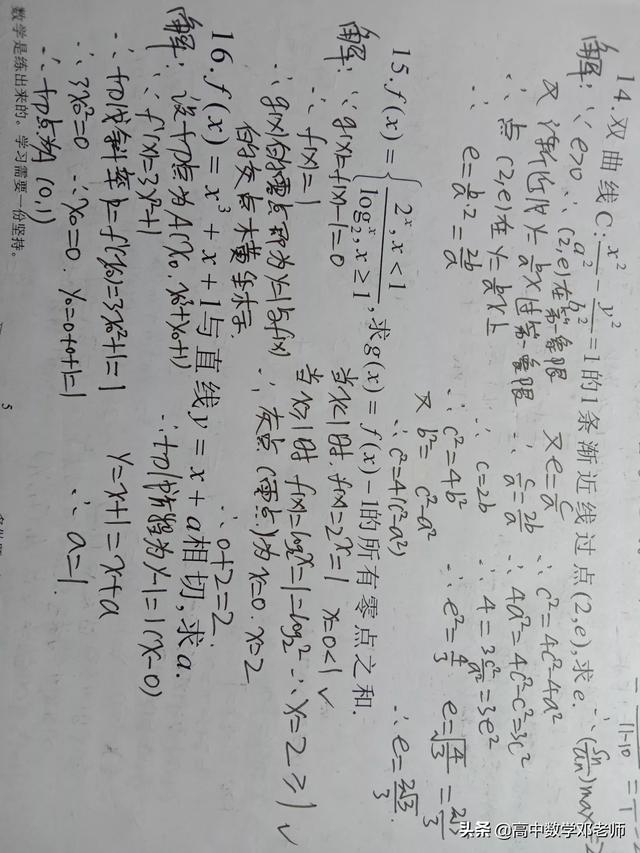 14.双曲线C:x²/a²-y²/b²=1的1条渐近线过点(2,e),求e.
解:∵e>0 ∴(2,e)在第一象限
又渐近线y=b/a x过第一象限
∴点(2,e)在y=b/a x上
∴e=b/a·2=2b/a
又e=c/a
∴c/a=2b/a
∴c=2b
∴c²=4b²
又b²=c²-a²
∴c²=4(c²-a²)
∴c²=4c²-4a²
∴4a²=4c²-c²=3c²
∴4=3c²/a²=3e²
∴e²=4/3 e=√4/3=2/√3
∴e=2√3/3
15.f(x)={2^x,x<1 log₂^x,x≥1,求g(x)=f(x)-1的所有零点之和.
解:∵g(x)=f(x)-1=0
∴f(x)=1
∴g(x)的零点即为y=1与f(x)
的交点横坐标.
当x<1时.f(x)=2^x=1 x=0<1√
当x≥1时 f(x)=log₂^x=1=log₂² ∴x=2≥1√
∴交点(零点)为x=0.x=2
∴0+2=2.
16.f(x)=x³+x+1与直线y=x+a相切,求a.
解:设切点为A(x₀,x₀³+x₀+1)
∵f'(x)=3x²+1
∴切线斜率k=f'(x₀)=3x₀²+1=1
∴3x₀²=0 ∴x₀=0.y₀=0+0+1=1
∴切点为A(0,1)
∴切线方程为y-1=1(x-0)
y=x+1=x+a
∴a=1.
数学是练出来的。学习需要一份坚持。
5
头条@高中数学邓老师